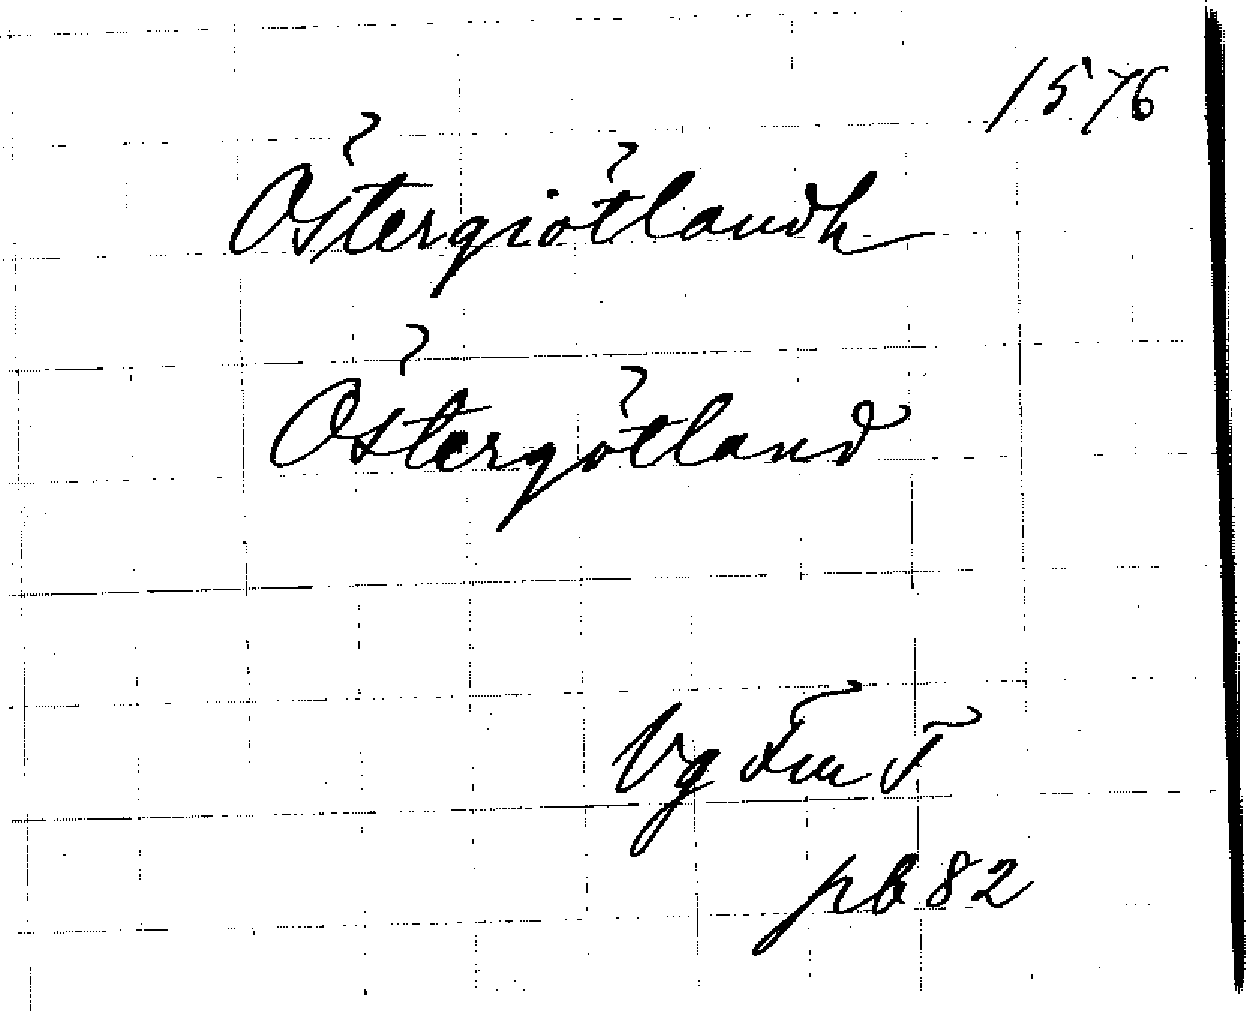 1576
Östergiötlandh
Östergötland
Vg Fm T
pb 82